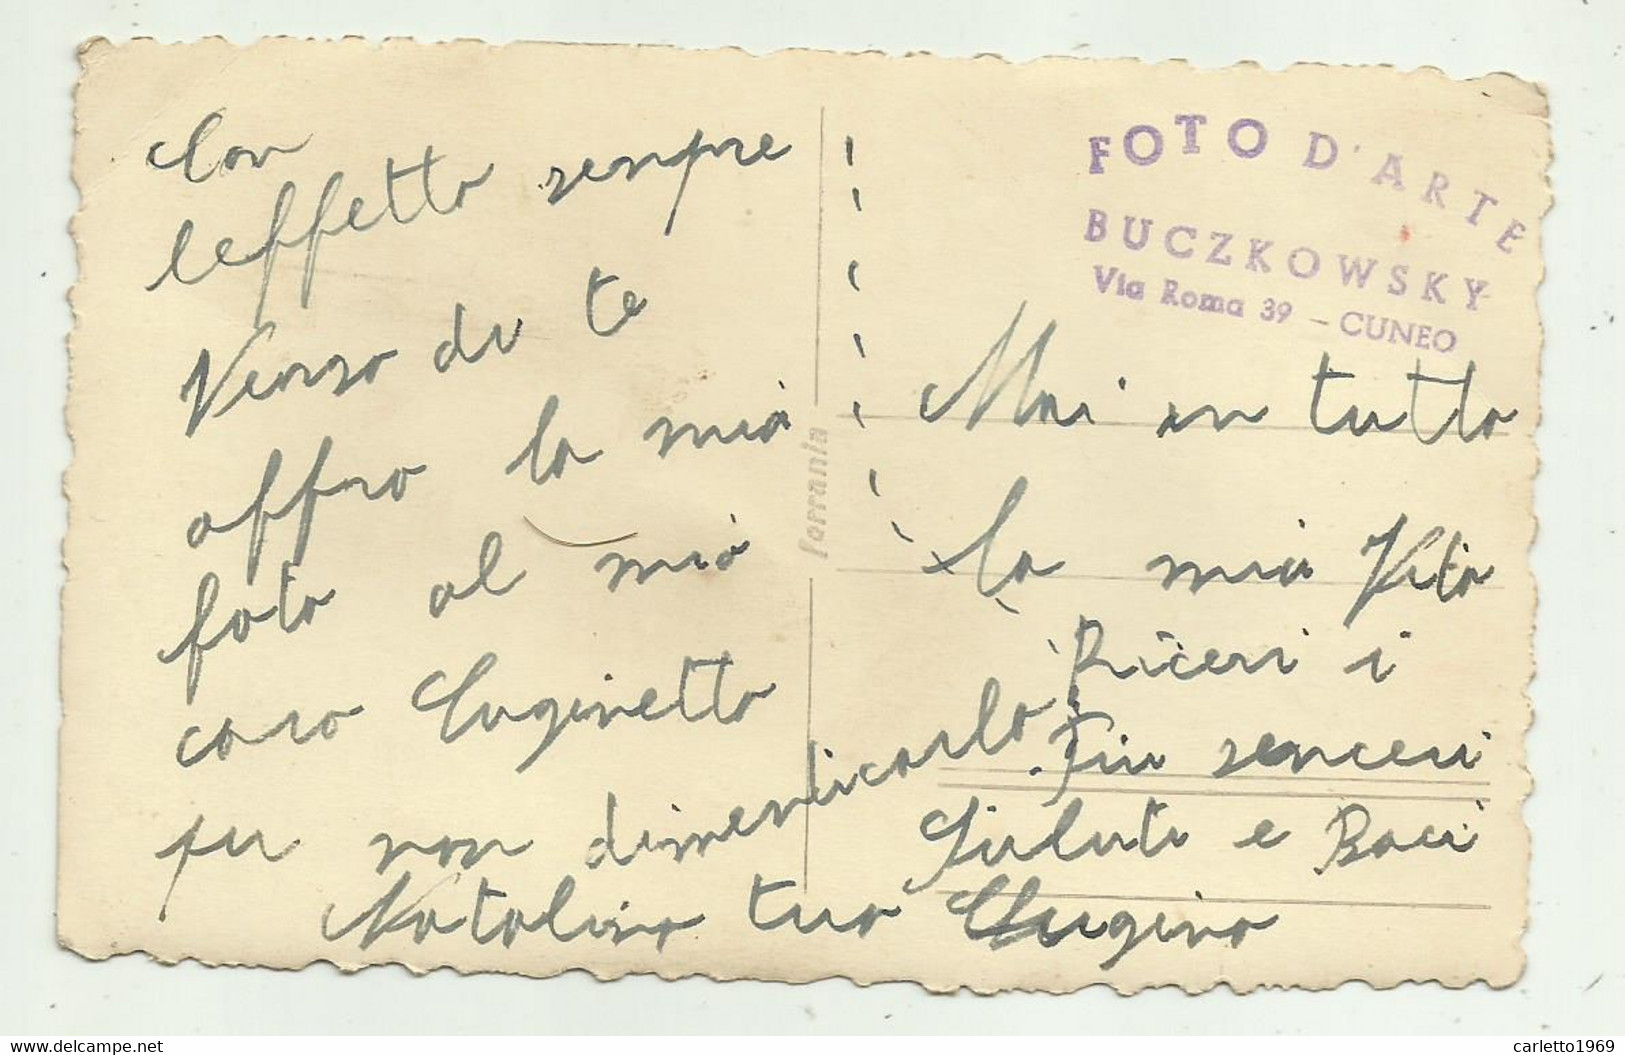 Con
leffetto sempre
Verso di te
offro la mia
foto al mio
caro Cuginetto
per non dimenticarlo
Mai in tutto
la mia Vita
Riceri i
Piu senceri
Saluti e Baci
Natalino tuo Cugino
FOTO D'ARTE
BUCZKOWSKY
Via Roma 39 - CUNEO
ferrania
www.delcampe.net
carletto1969